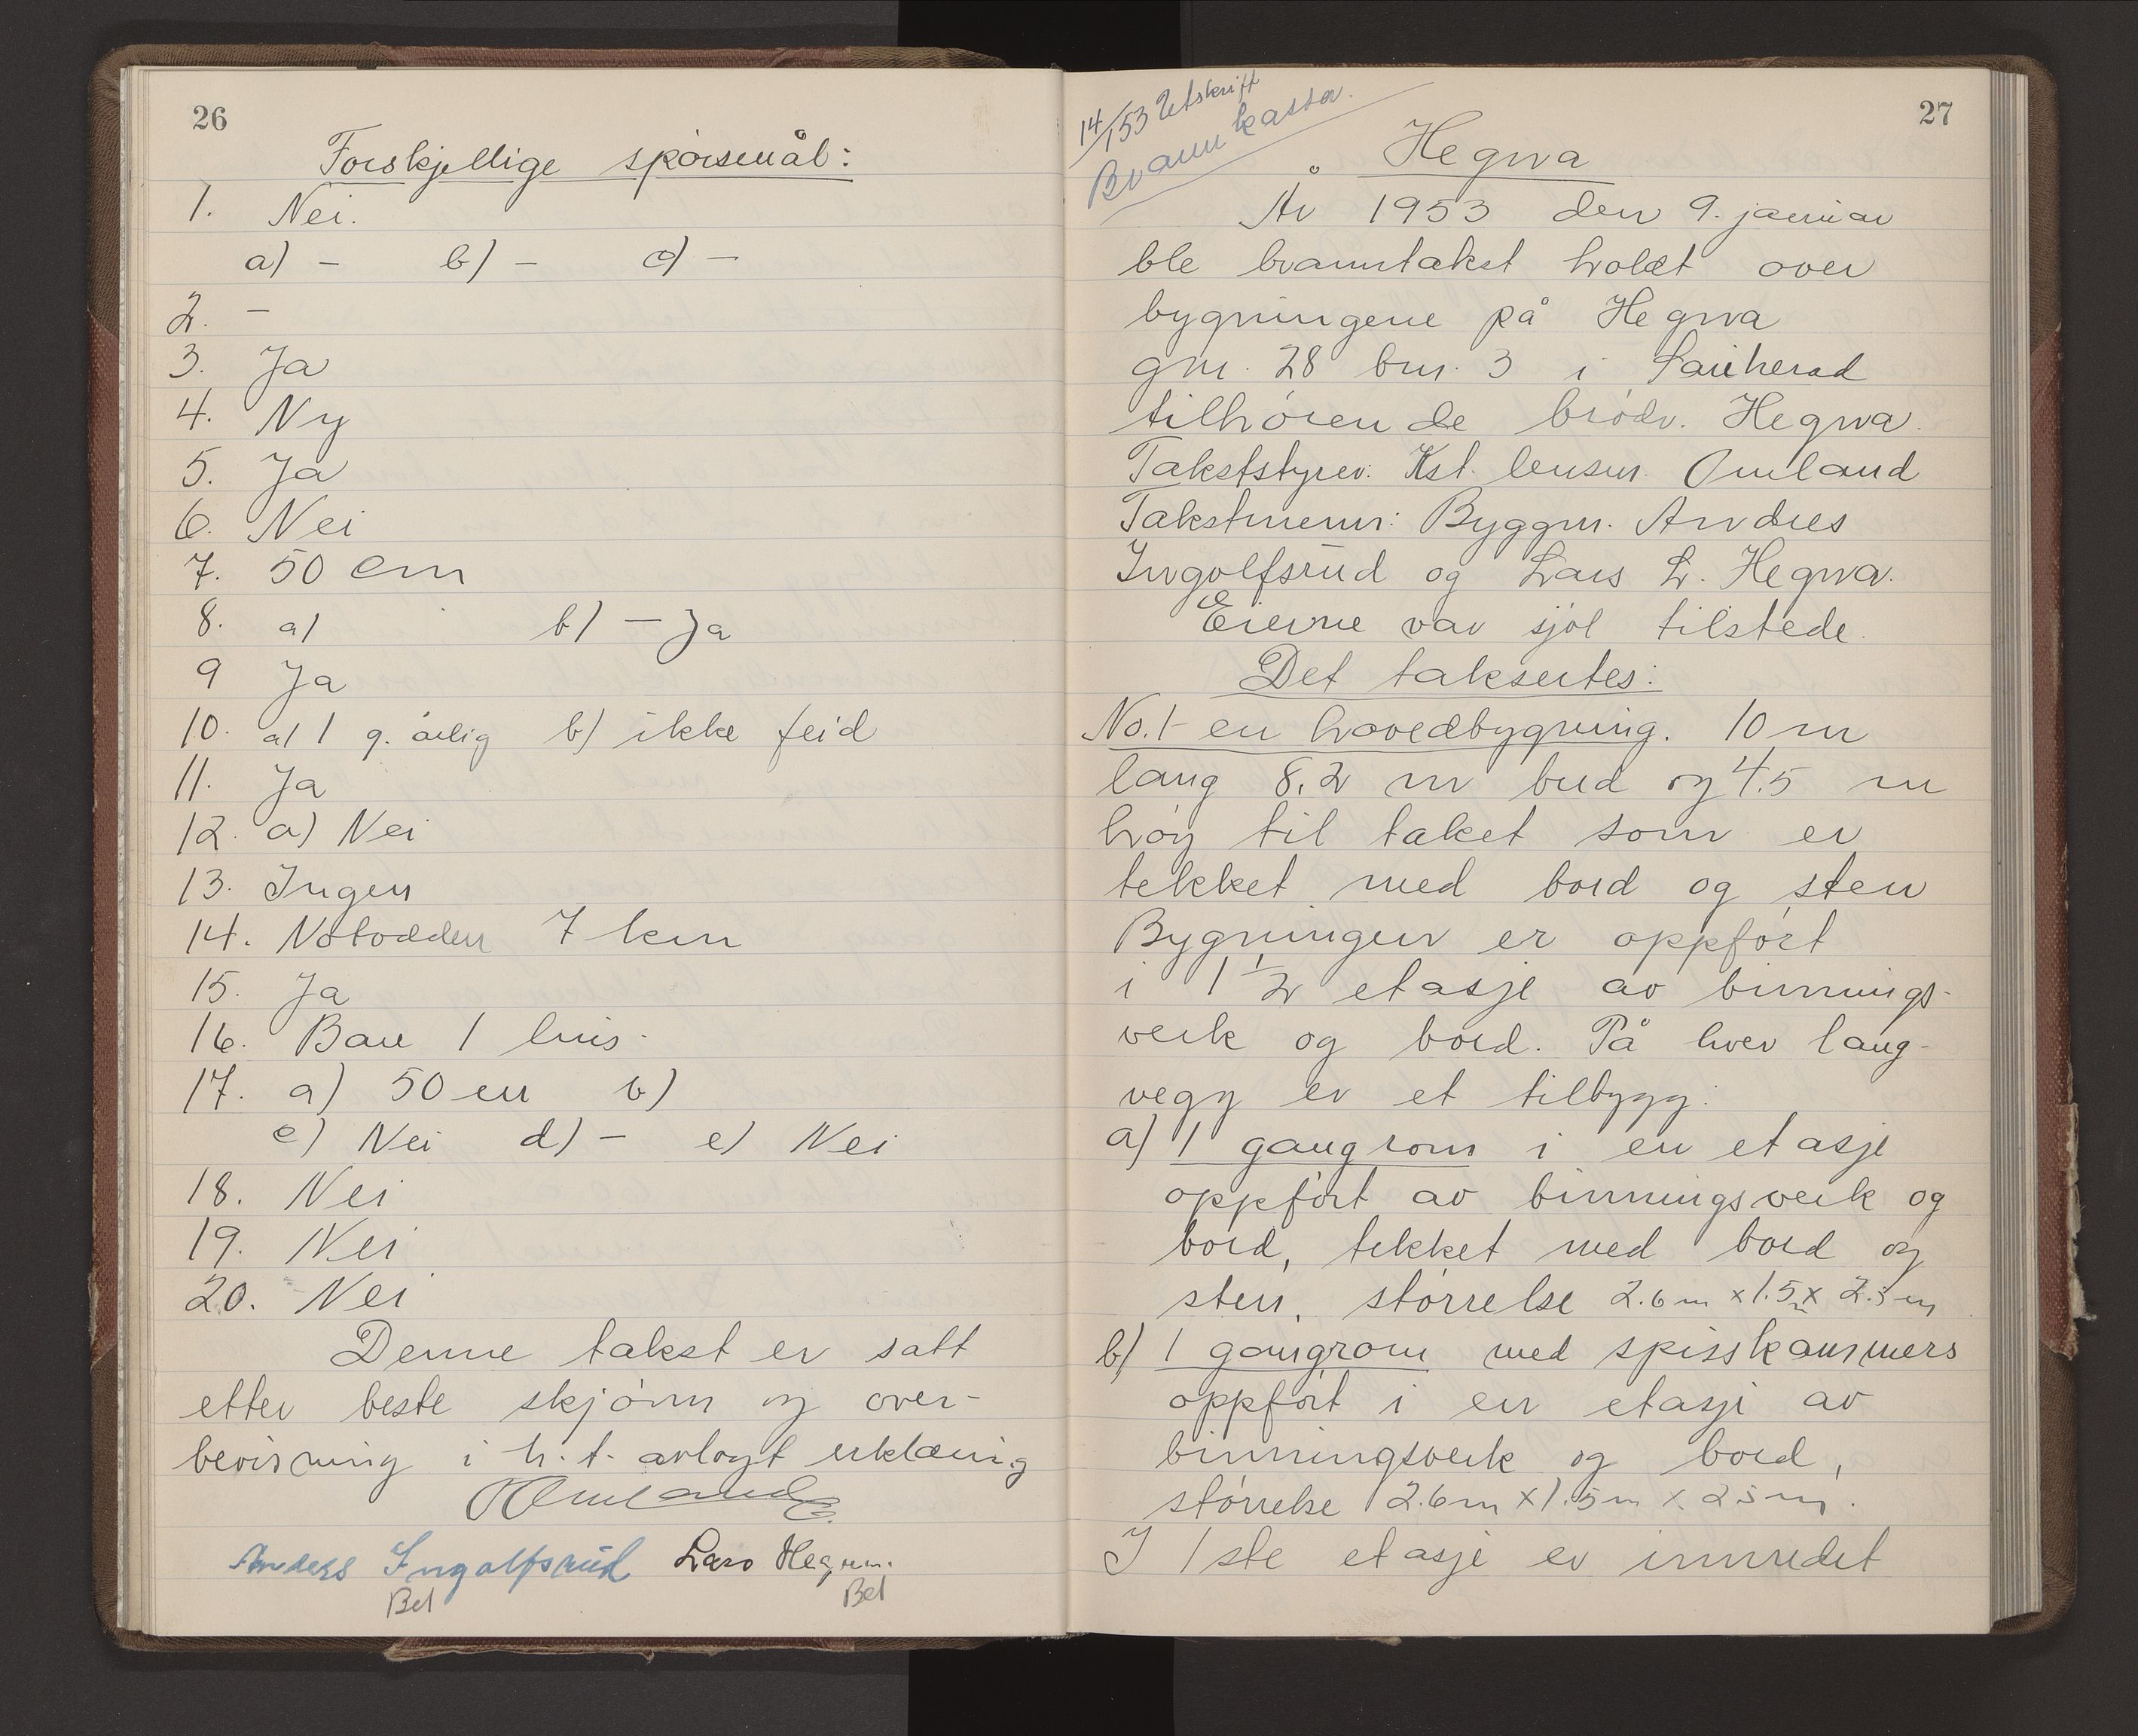 26
Forskjellige spørsmål:
1. Nei.
a) – b) – c) –
2. –
3. Ja
4. Ny
5. Ja
6. Nei
7. 50 cm
8. a) b) – Ja
9 Ja
10. a) 1 g. årlig b) ikke feid
11. Ja
12. a) Nei
13. Ingen
14. Notodden 7 km
15. Ja
16. Bare 1 hus.
17. a) 50 cm b)
c) Nei d) – e) Nei
18. Nei
19. Nei
20. Nei
Denne takst er satt
etter beste skjønn og over-
bevisning i h.t. avlagt erklæring
Omland
Anders Ingolfsrud Lars Hegna.
Bet Bet
14/153 Utskrift
Brannkassa.
27
Hegna
År 1953 den 9. januar
ble branntakst holdt over
bygningene på Hegna
gnr. 28 bnr. 3 i Sauherad
tilhørende brødr. Hegna.
Takststyrer: Kst. lensm. Omland
Takstmenn: Byggm. Andres
Ingolfsrud og Lars L. Hegna.
Eierne var sjøl tilstede.
Det taksertes:
No. 1 en hovedbygning. 10 m
lang 8,2 m bred og 4.5 m
høg til taket som er
tekket med bord og sten
Bygningen er oppført
i 1 1/2 etasje av binnings-
verk og bord. På hver lang-
vegg er et tilbygg:
a) 1 gangrom i en etasje
oppført av binningsverk og
bord, tekket med bord og
sten, størrelse 2.6 m x 1.5 m x 2.5 m
b) 1 gangrom med spisskammers
oppført i en etasje av
binningsverk og bord,
størrelse 2.6 m x 1.5 m x 2.5 m.
I 1ste etasje er innredet